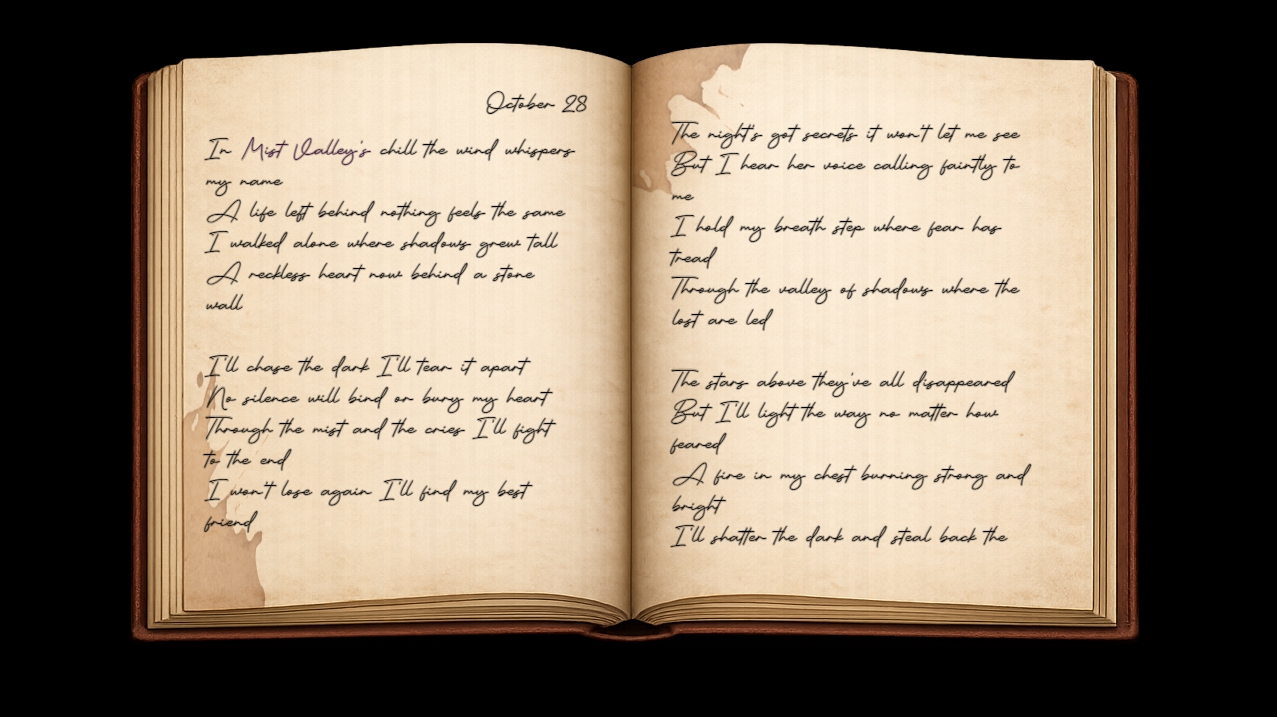 October 28
In Mist Valley's chill the wind whispers
my name
A life left behind nothing feels the same
I walked alone where shadows grew tall
A reckless heart now behind a stone
wall
I'll chase the dark I'll tear it apart
No silence will bind or bury my heart
Through the mist and the cries I'll fight
to the end
I won't lose again I'll find my best
friend
The night's got secrets it won't let me see
But I hear her voice calling faintly to
me
I hold my breath step where fear has
tread
Through the valley of shadows where the
lost are led
The stars above they've all disappeared
But I'll light the way no matter how
feared
A fire in my chest burning strong and
bright
I'll shatter the dark and steal back the